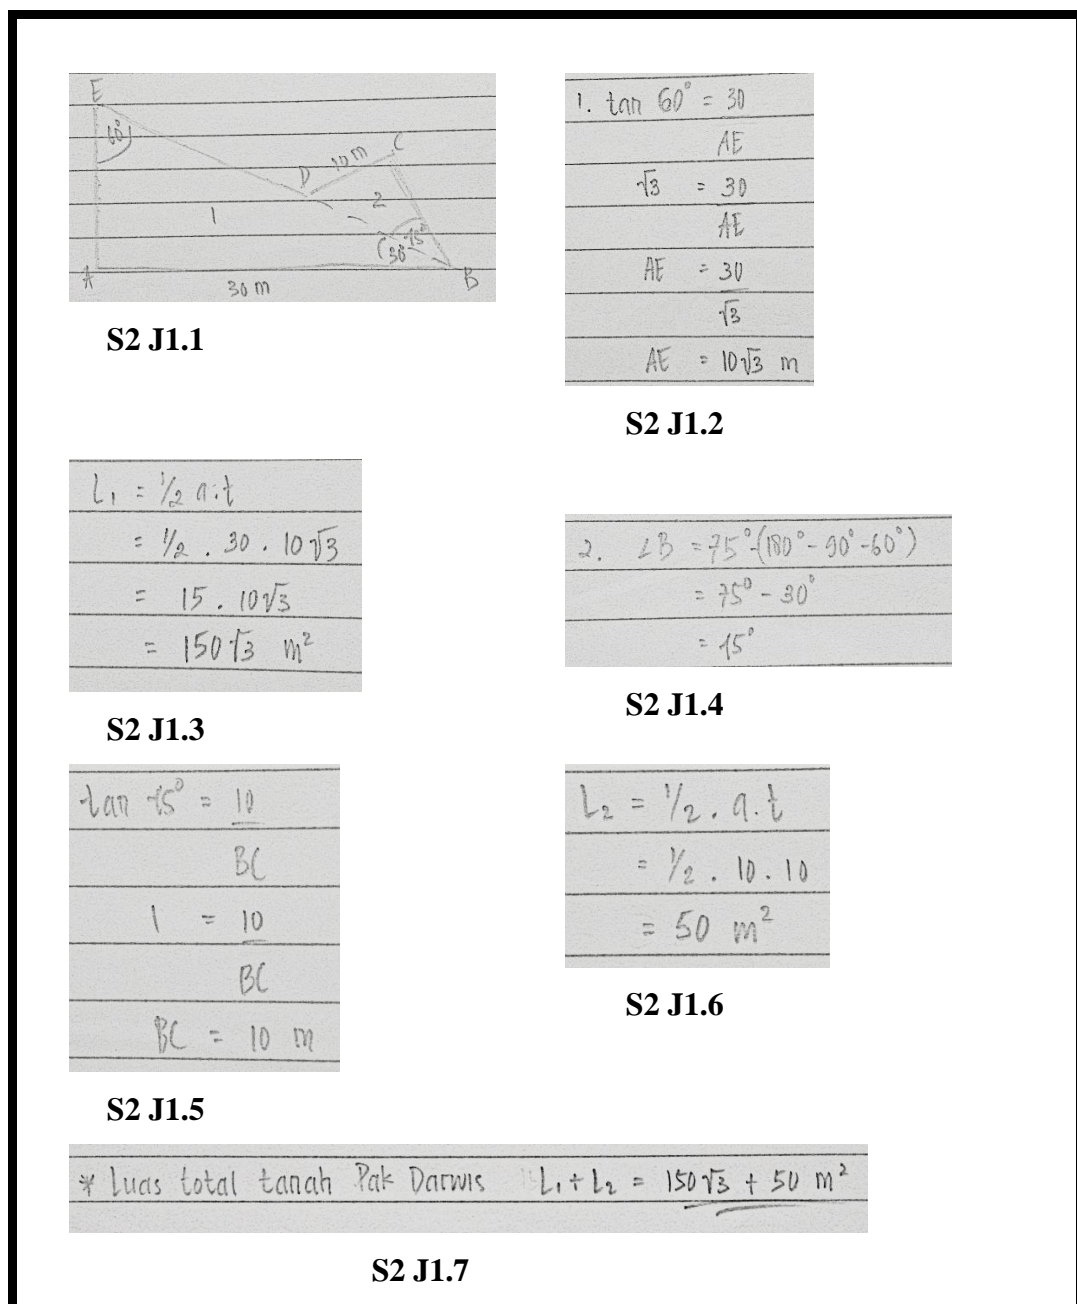 E
60°
D 10 m C
1
2
30° 45°
A
30 m
B
S2 J1.1
1. tan 60° = 30
AE
√3 = 30
AE
AE = 30
√3
AE = 10√3 m
S2 J1.2
L₁ = 1/2 a.t
= 1/2 . 30 . 10√3
= 15 . 10√3
= 150√3 m²
S2 J1.3
2. ∠B = 75°-(180°-90°-60°)
= 75° - 30°
= 45°
S2 J1.4
tan 45° = 10
BC
1 = 10
BC
BC = 10 m
S2 J1.5
L₂ = 1/2 . a.t
= 1/2 . 10 . 10
= 50 m²
S2 J1.6
* Luas total tanah Pak Darwis L₁+L₂ = 150√3 + 50 m²
S2 J1.7